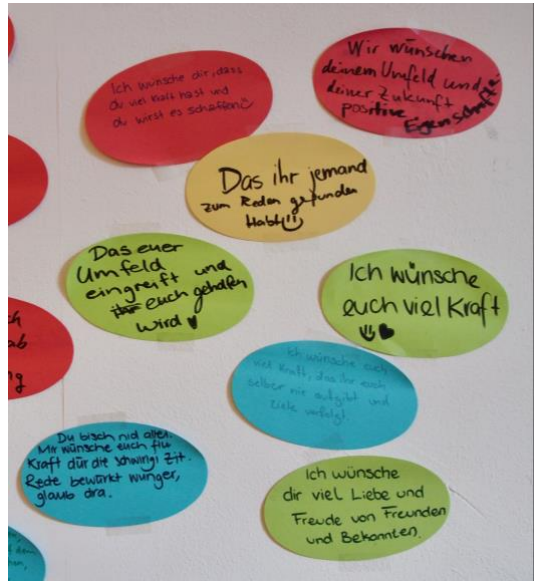 Ich wünsche dir, dass
du viel Kraft hast und
du wirst es schaffen
Wir wünschen
deinem Umfeld und
deiner Zukunft
positive
Eigenschaft
Das ihr jemand
zum Reden gefunden
Habt!
Das euer
Umfeld
eingreift und
euch geholfen
wird
Ich wünsche
euch viel Kraft
Ich wünsche euch
viel Kraft, das ihr euch
selber nie aufgibt und
Ziele verfolgt
Du bisch nid allei.
Mir wünsche euch fiu
Kraft dür die schwirigi Zit.
Rede bewürkt wunger,
glaub dra.
Ich wünsche
dir viel Liebe und
Freude von Freunden
und Bekannten.
ch
ab
g